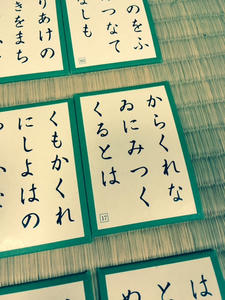 のをふ
つなて
なしも
りあけの
きをまち
からくれな
ゐにみつく
くるとは
17
くもかくれ
にしよはの